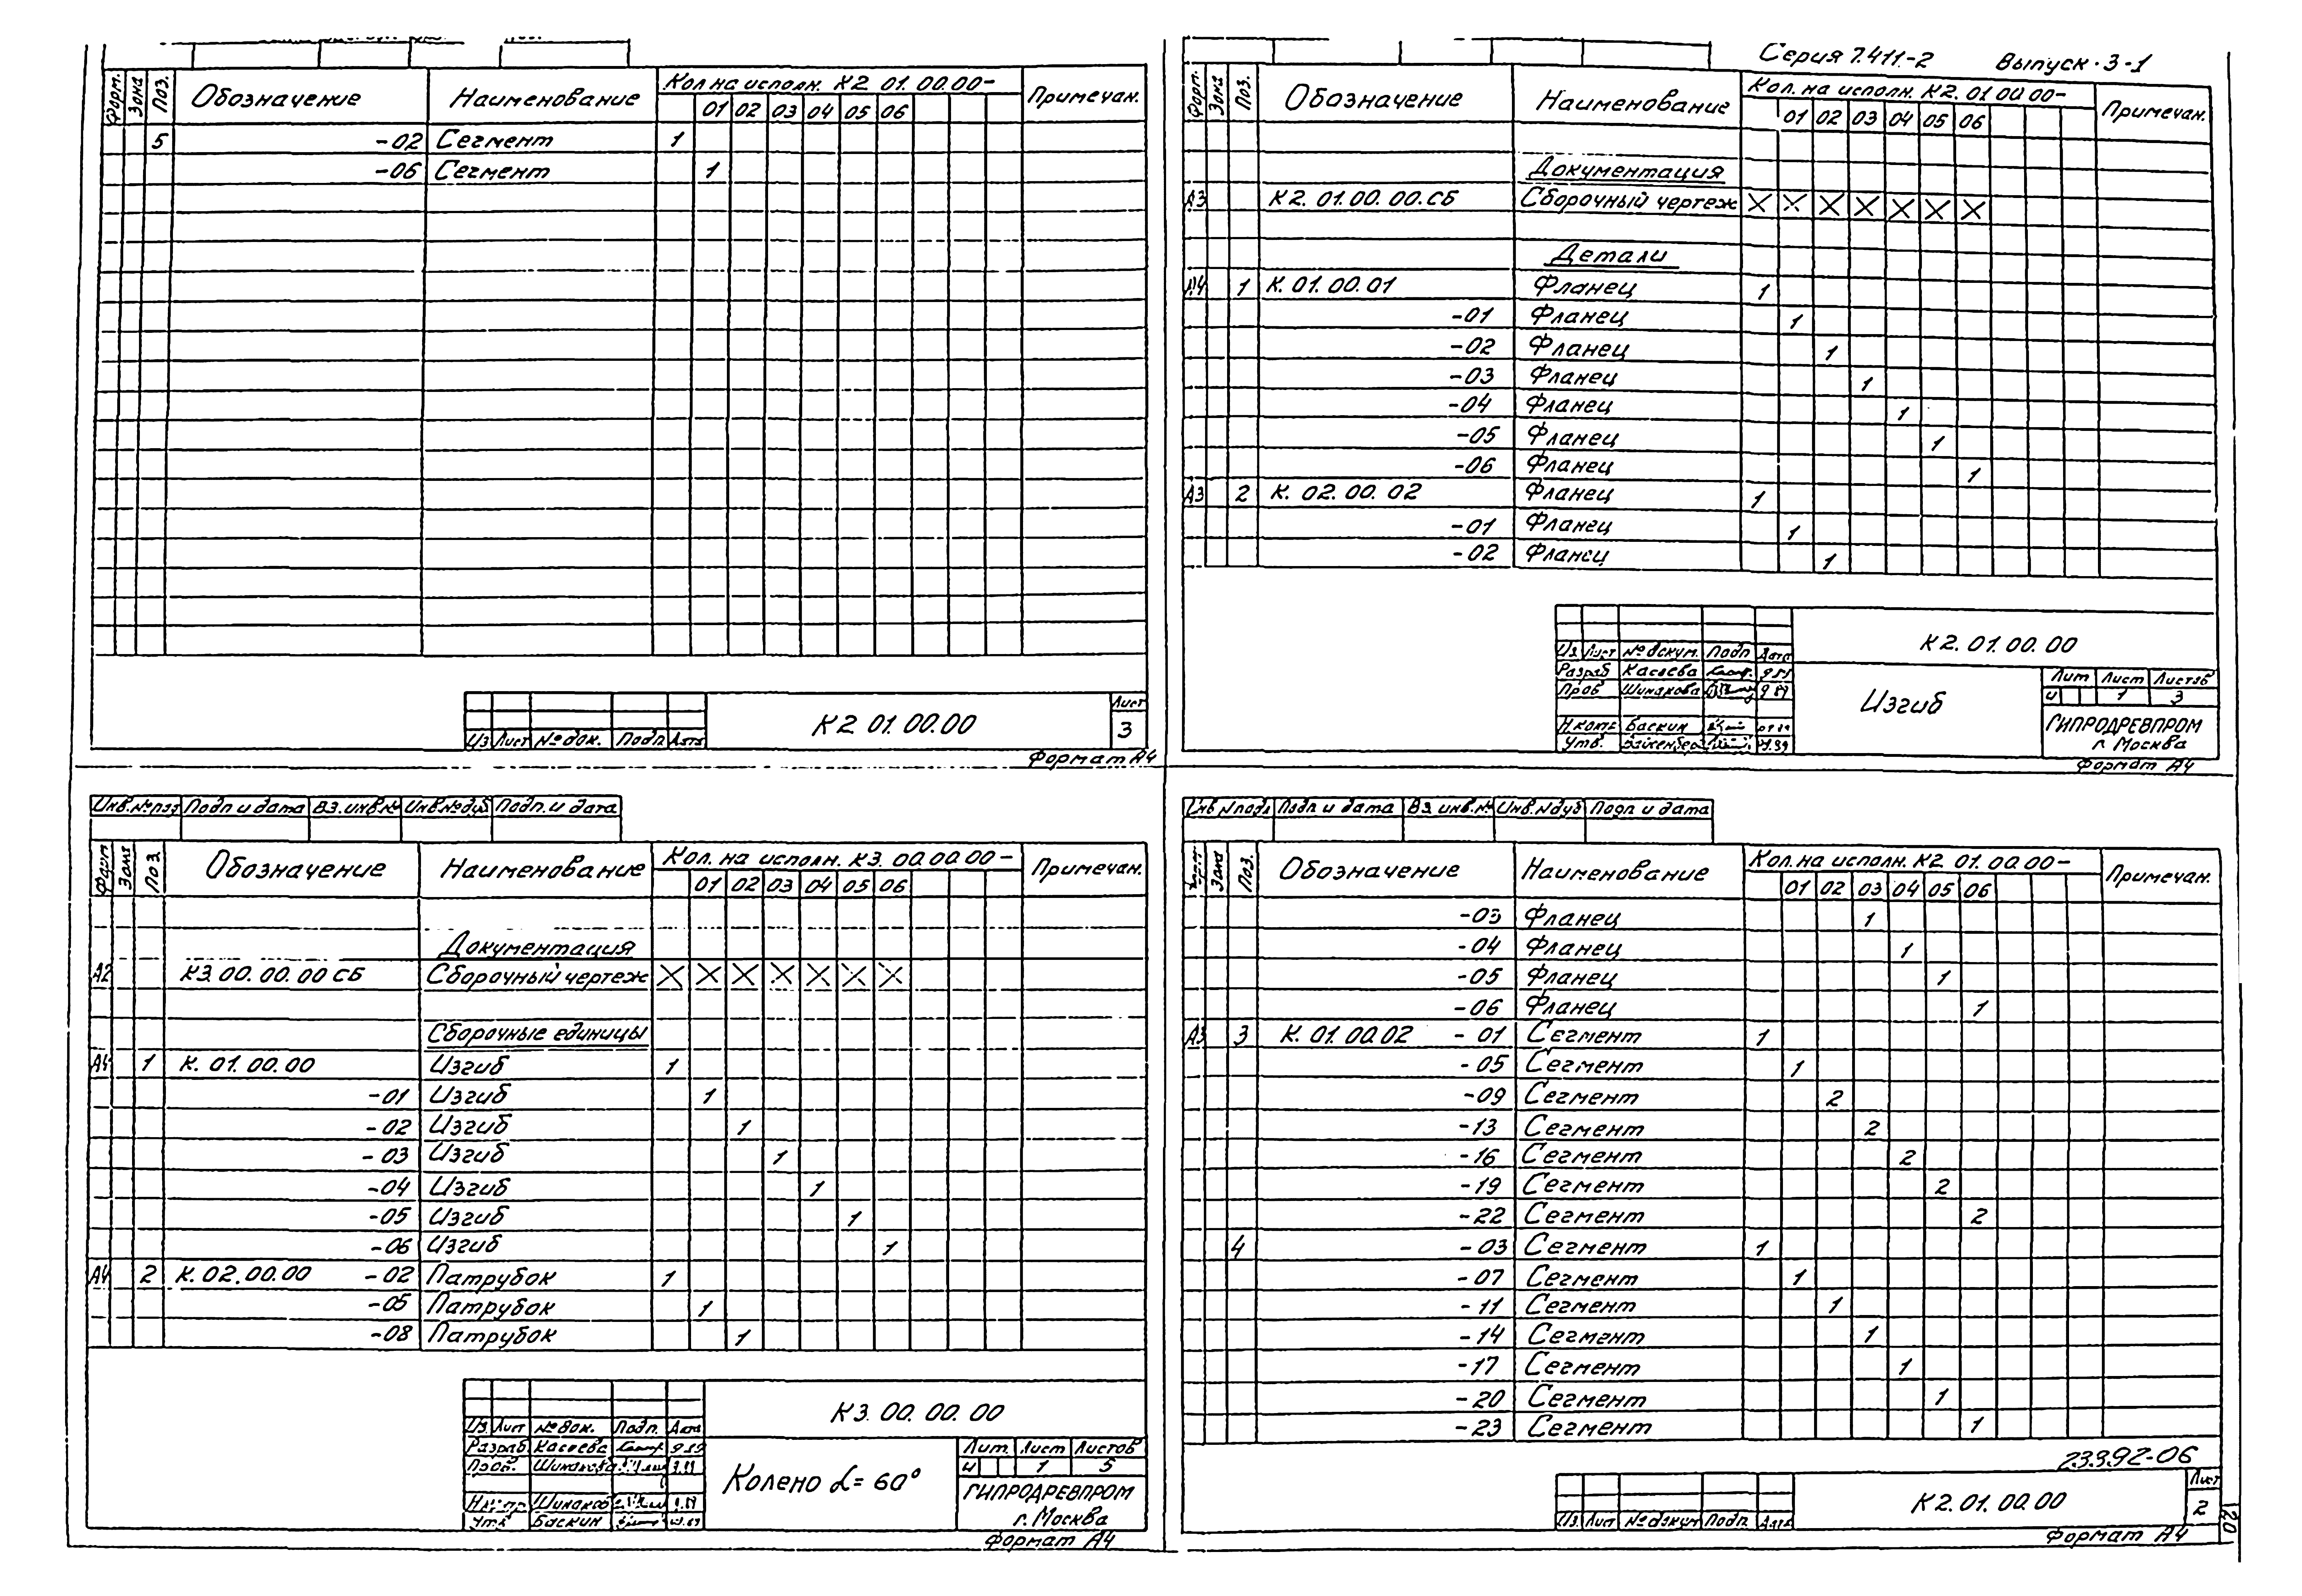 Форм. Зона Поз. Обозначение Наименование Кол на исполн. К2 01.00.00- Примечан.
01 02 03 04 05 06
5 -02 Сегмент 1
-06 Сегмент 1
К2 01.00.00
Лист
3
Из Лист № док. Подп Дата
Формат А4
Серия 7.411-2 Выпуск 3-1
Форм. Зона Поз. Обозначение Наименование Кол. на исполн. К2. 01 00.00- Примечан.
01 02 03 04 05 06
Документация
А3 К2. 01.00.00.СБ Сборочный чертеж X X X X X X X
Детали
А4 1 К. 01.00.01 Фланец 1
-01 Фланец 1
-02 Фланец 1
-03 Фланец 1
-04 Фланец 1
-05 Фланец 1
-06 Фланец 1
А3 2 К. 02.00.02 Фланец 1
-01 Фланец 1
-02 Фланец 1
К2. 01.00.00
Из. Лист № докум. Подп Дата
Разраб Касаева
Пров Шинакова
Н.конт. Баскин
Утв.
Изгиб
Лит Лист Листов
и 1 3
ГИПРОДРЕВПРОМ
г. Москва
Формат А4
Инв. № под Подп и дата Вз. инв. № Инв. № дуб Подп. и дата
Форм Зона Поз Обозначение Наименование Кол. на исполн. К3. 00.00.00- Примечан.
01 02 03 04 05 06
Документация
А2 К3. 00.00.00 СБ Сборочный чертеж X X X X X X X
Сборочные единицы
А4 1 К. 01.00.00 Изгиб 1
-01 Изгиб 1
-02 Изгиб 1
-03 Изгиб 1
-04 Изгиб 1
-05 Изгиб 1
-06 Изгиб 1
А4 2 К. 02.00.00 -02 Патрубок 1
-05 Патрубок 1
-08 Патрубок 1
К3. 00.00.00
Из Лист № док. Подп. Дата
Разраб Касаева
Пров. Шинакова
Шинаков
Утв Баскин
Колено α = 60°
Лит. Лист Листов
и 1 5
ГИПРОДРЕВПРОМ
г. Москва
Формат А4
Инв № подл Подп и дата Вз. инв. № Инв. № дуб Подп и дата
Зона Поз. Обозначение Наименование Кол. на исполн. К2. 01.00.00- Примечан.
01 02 03 04 05 06
-03 Фланец 1
-04 Фланец 1
-05 Фланец 1
-06 Фланец 1
А3 3 К. 01.00.02 - 01 Сегмент 1
-05 Сегмент 1
-09 Сегмент 2
-13 Сегмент 2
-16 Сегмент 2
-19 Сегмент 2
-22 Сегмент 2
4 -03 Сегмент 1
-07 Сегмент 1
-11 Сегмент 1
-14 Сегмент 1
-17 Сегмент 1
-20 Сегмент 1
-23 Сегмент 1
23392-06
К2. 01.00.00
Лист
2
Из. Лист № докум Подп Дата
Формат А4